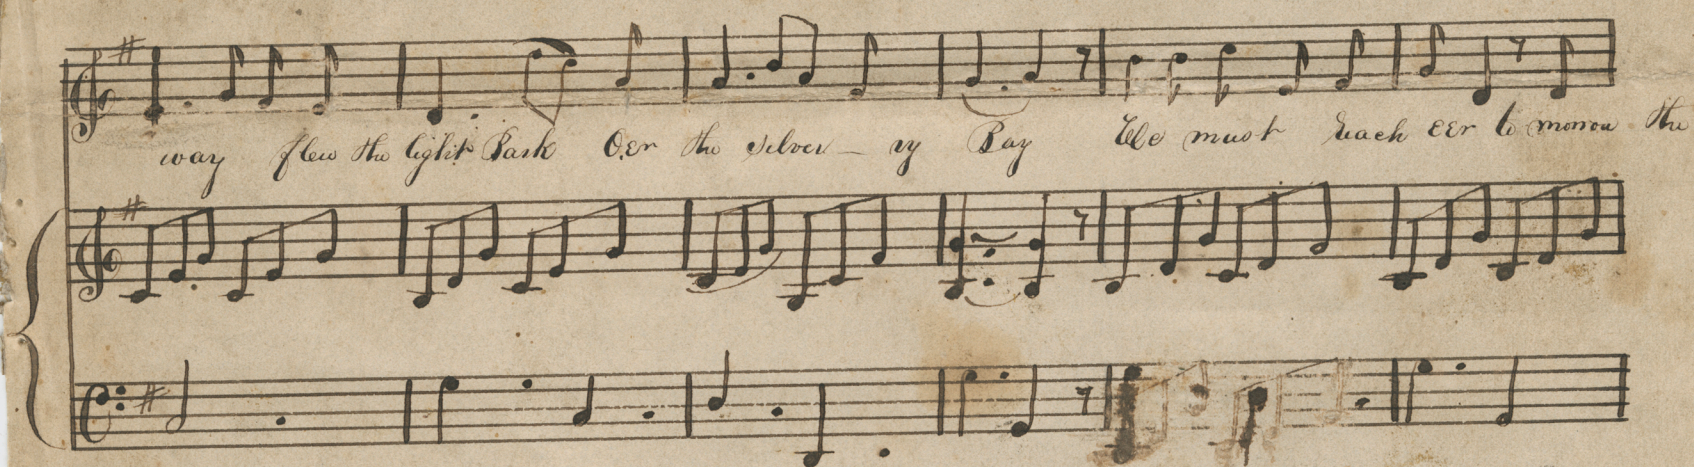 way flew the light Bark O,er the silver - ry Bay We must reach eer to morrow the